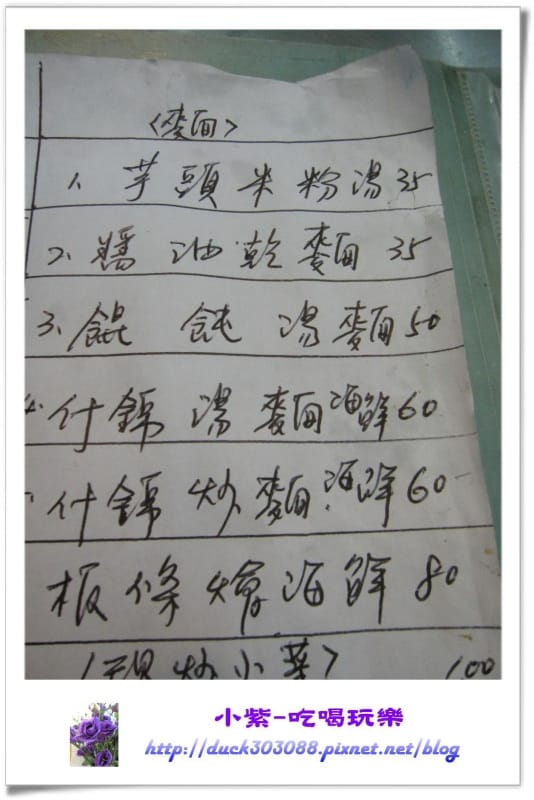 <麥面>
1、芋頭米粉湯35
2、醬油乾麵35
3、餛飩湯麵50
4、什錦湯麵海鮮60
什錦炒麵海鮮60
板條燴海鮮80
<現炒小菜> 100
小紫-吃喝玩樂
http://duck303088.pixnet.net/blog